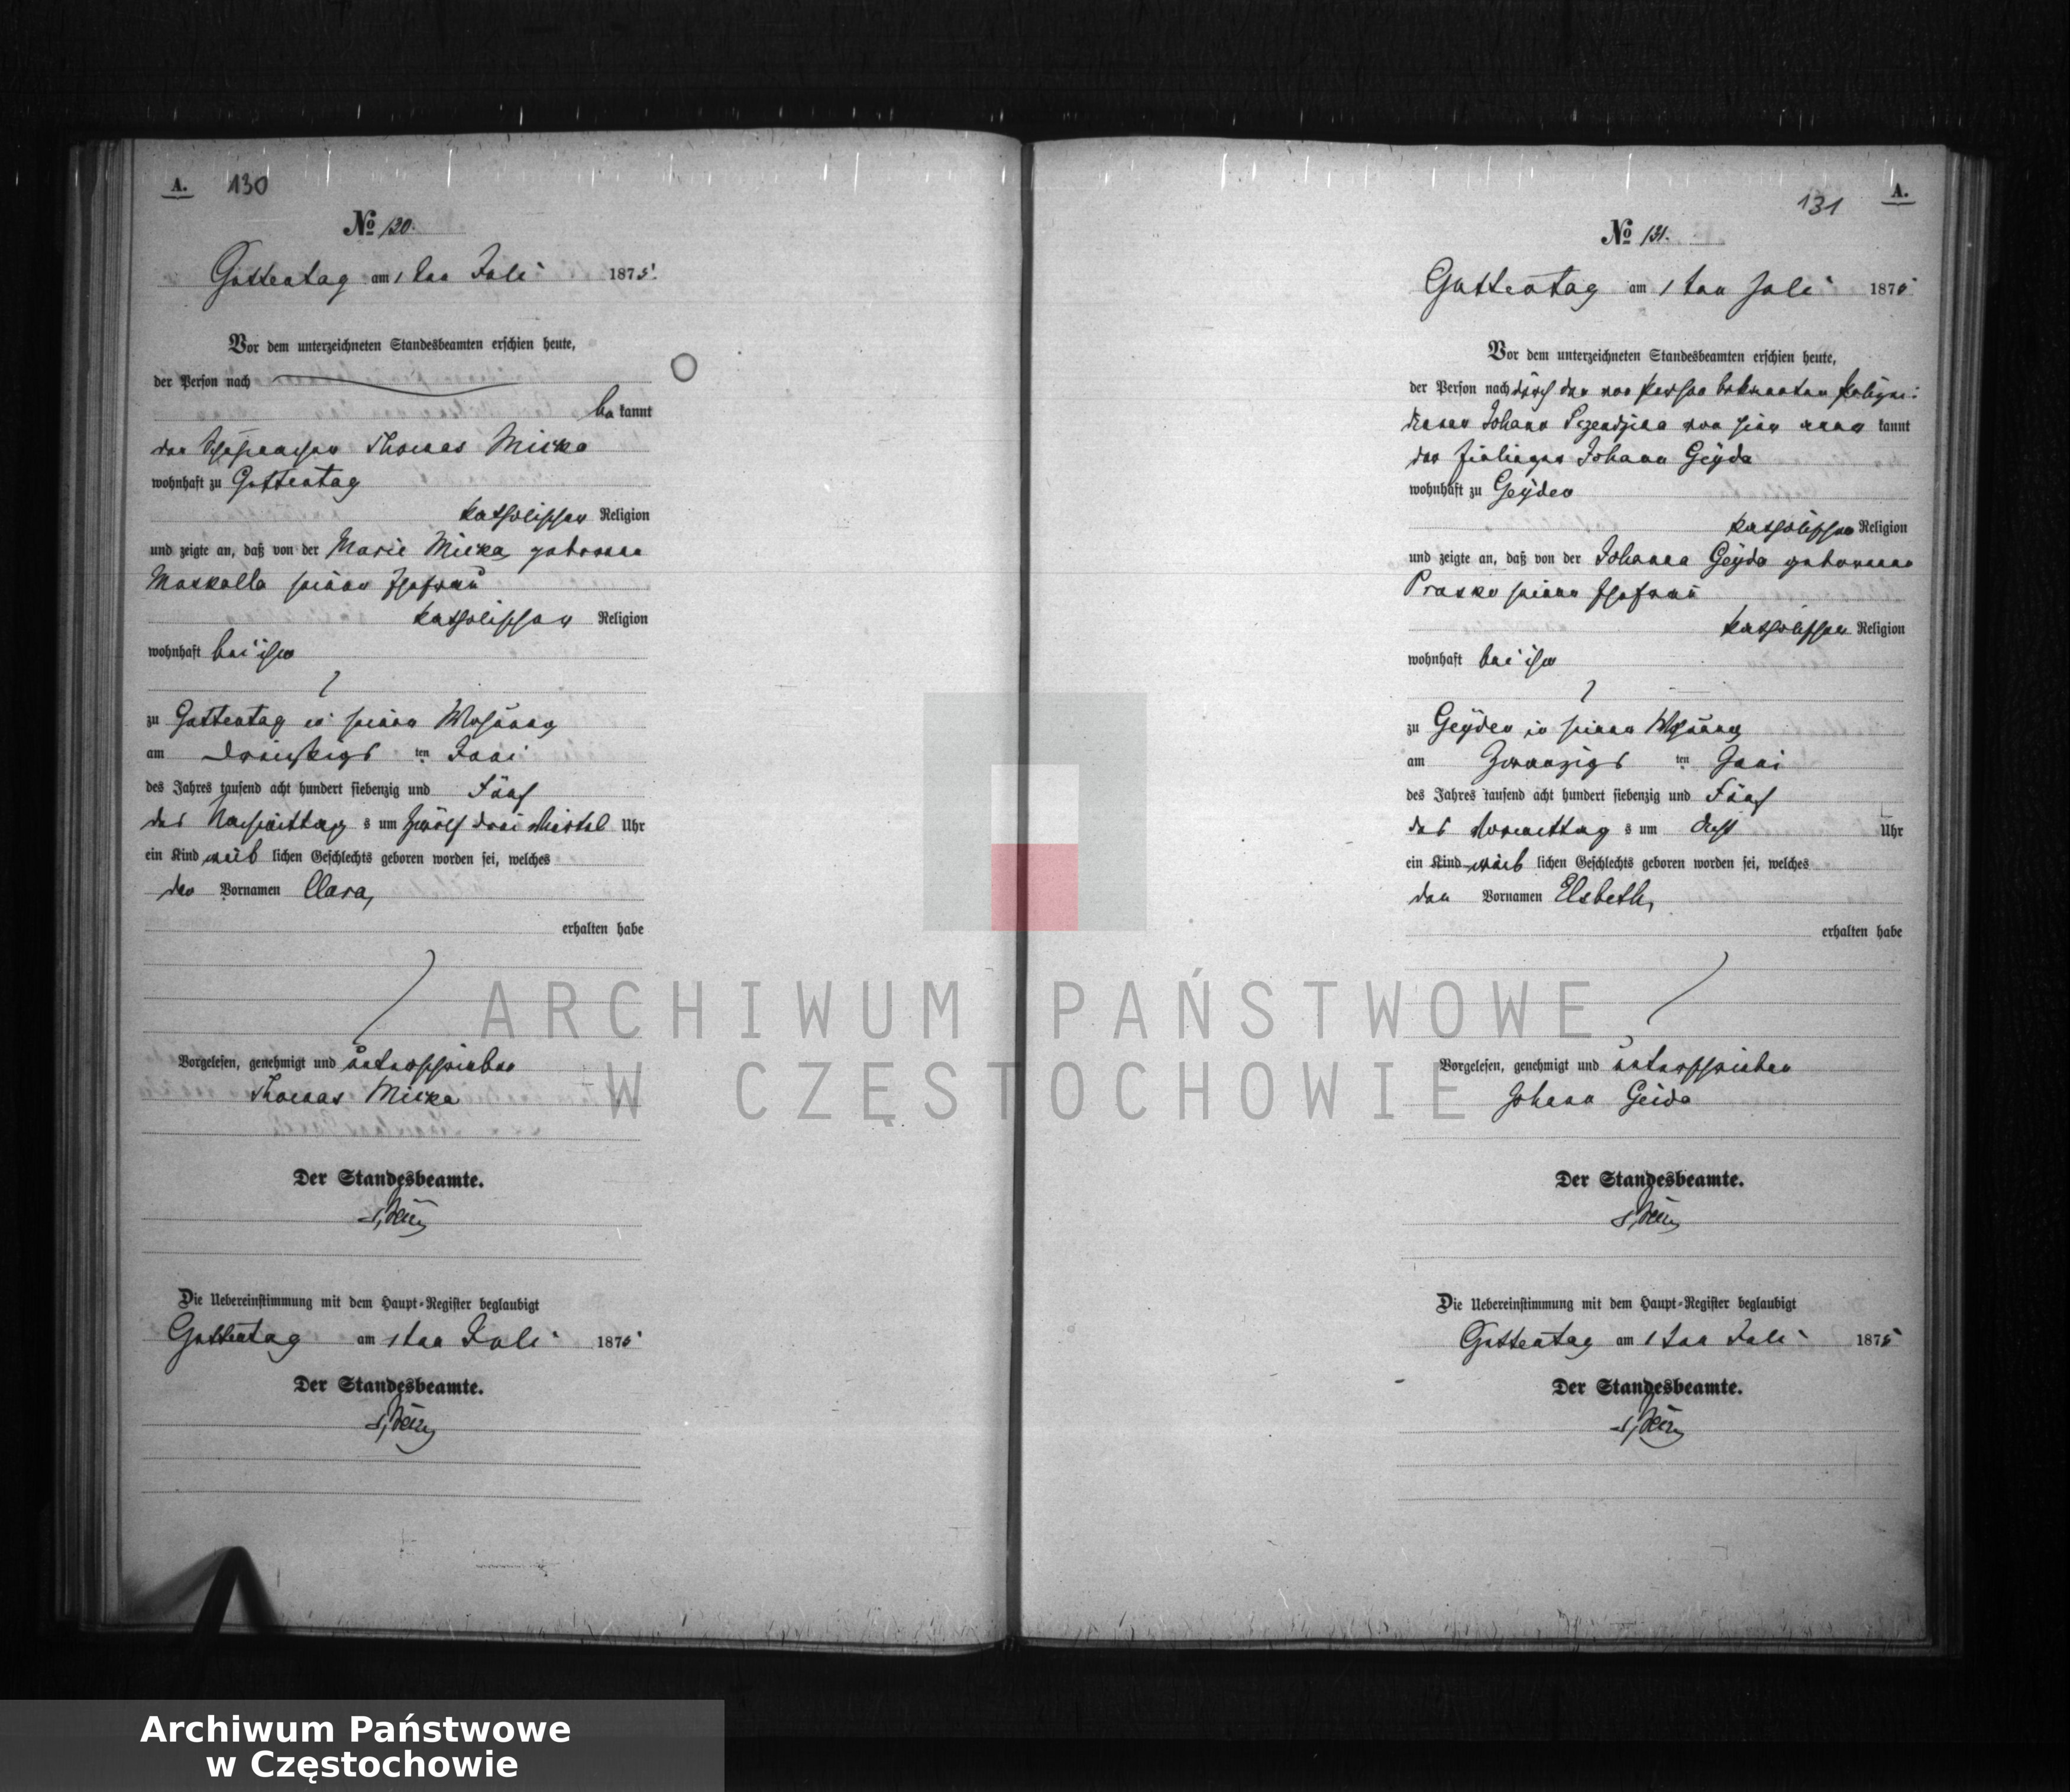 A. 130
No 130.
Guttentag am 1ten Juli 1875.
Vor dem unterzeichneten Standesbeamten erschien heute,
der Person nach
be kannt
der Thomas Micka
wohnhaft zu Guttentag
katholischer Religion
und zeigte an, daß von der Marie Micka, geborene
Moskalla seiner Ehefrau
katholischer Religion
wohnhaft bei ihm
zu Guttentag in seiner Wohnung
am dreißigst ten Juni
des Jahres tausend acht hundert siebenzig und Fünf
des Nachmittag s um zwölf drei Viertel Uhr
ein Kind weib lichen Geschlechts geboren worden sei, welches
den Vornamen Clara,
erhalten habe
Vorgelesen, genehmigt und unterschrieben
Thomas Micka
Der Standesbeamte.
Die Uebereinstimmung mit dem Haupt-Register beglaubigt
Guttentag am 1ten Juli 1875
Der Standesbeamte.
131 A.
No 131.
Guttentag am 1ten Juli 1875
Vor dem unterzeichneten Standesbeamten erschien heute,
der Person nach durch den von Person bekannten Polizei-
diener Johann kannt
der Johann Geyda
wohnhaft zu Geyder
katholischer Religion
und zeigte an, daß von der Johanna Geyda geborene
Prasko seiner Ehefrau
katholischer Religion
wohnhaft bei ihm
zu Geyder in seiner Wohnung
am Zwanzigst ten Juni
des Jahres tausend acht hundert siebenzig und Fünf
des Vormittag s um Acht Uhr
ein Kind weib lichen Geschlechts geboren worden sei, welches
den Vornamen Elsbeth,
erhalten habe
Vorgelesen, genehmigt und unterschrieben
Johann Geida
Der Standesbeamte.
Die Uebereinstimmung mit dem Haupt-Register beglaubigt
Guttentag am 1ten Juli 1875
Der Standesbeamte.
ARCHIWUM PAŃSTWOWE
W CZĘSTOCHOWIE
Archiwum Państwowe
w Częstochowie